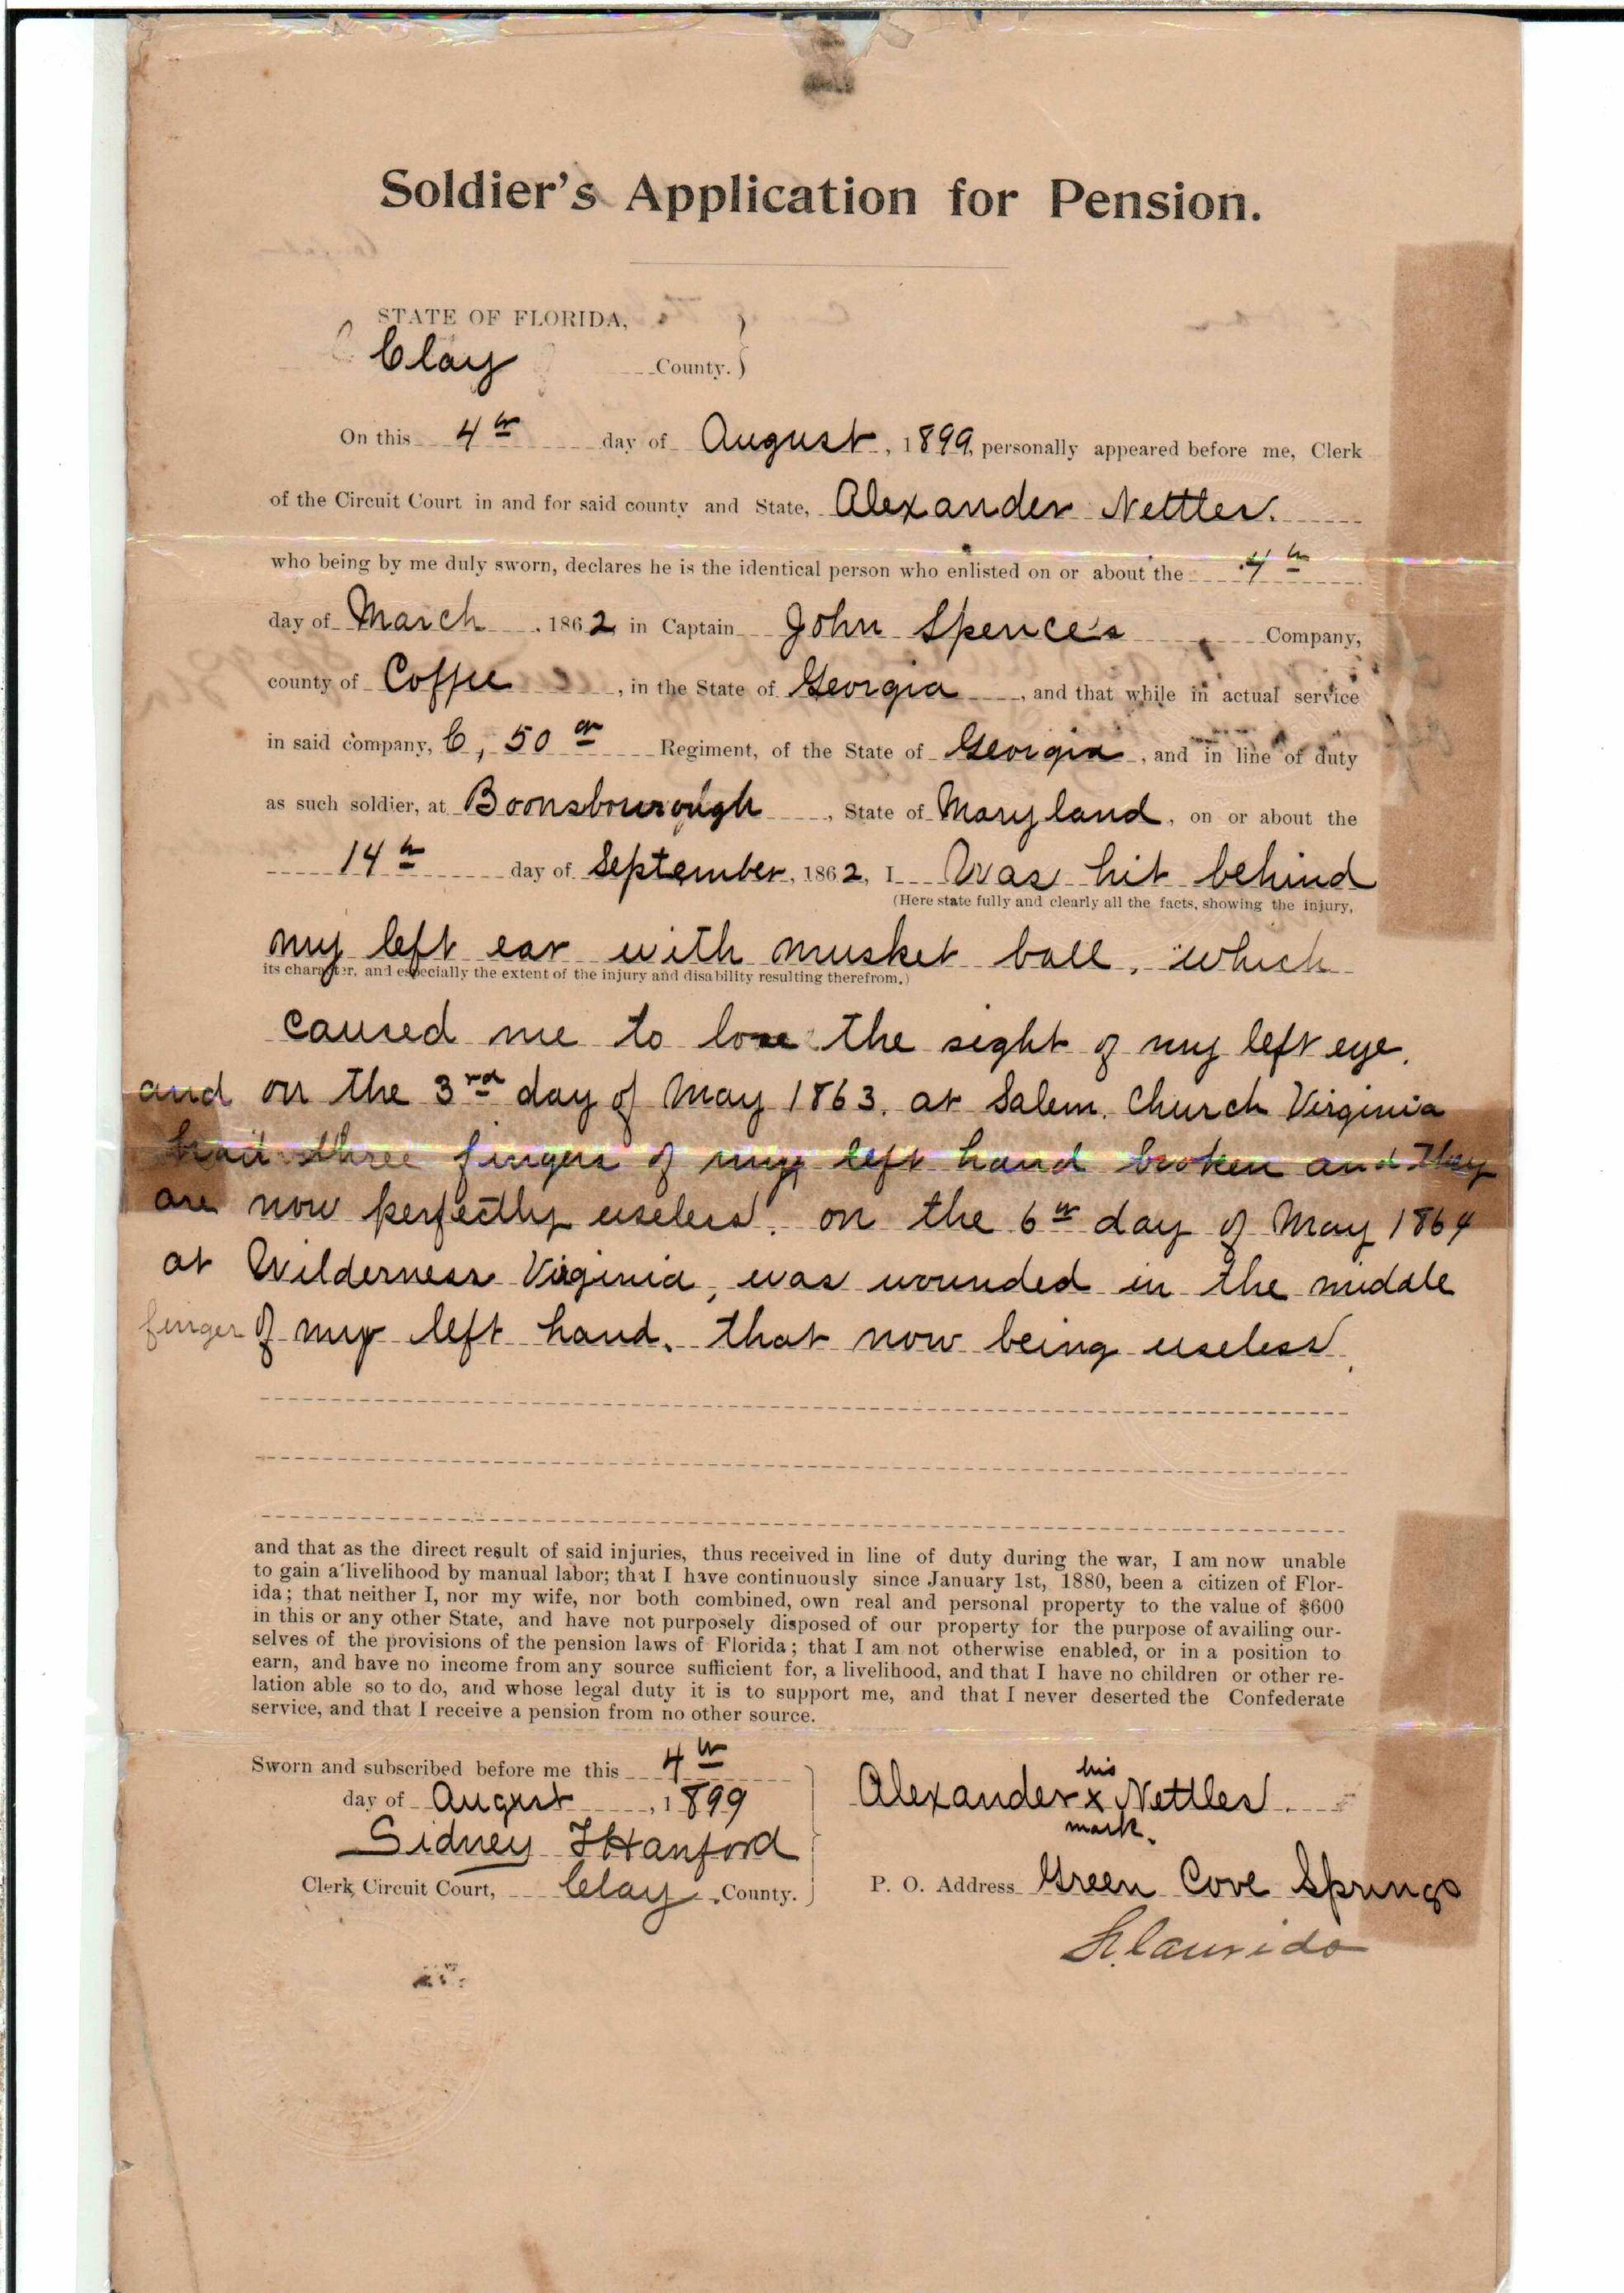 Soldier's Application for Pension.
STATE OF FLORIDA,
Clay County.
On this 4th day of August, 1899, personally appeared before me, Clerk
of the Circuit Court in and for said county and State, Alexander Nettles.
who being by me duly sworn, declares he is the identical person who enlisted on or about the 4th
day of March, 1862, in Captain John Spence's Company,
county of Coffee, in the State of Georgia, and that while in actual service
in said company, C, 50th Regiment, of the State of Georgia, and in line of duty
as such soldier, at Boonsbourough, State of Maryland, on or about the
14th day of September, 1862, I Was hit behind
(Here state fully and clearly all the facts, showing the injury,
my left ear with musket ball, which
its character, and especially the extent of the injury and disability resulting therefrom.)
caused me to lose the sight of my left eye.
and on the 3rd day of May 1863. at Salem. Church Virginia
had three fingers of my left hand broken and they
are now perfectly useless. on the 6th day of May 1864
at Wilderness Virginia, was wounded in the middle
finger of my left hand. that now being useless.
and that as the direct result of said injuries, thus received in line of duty during the war, I am now unable
to gain a livelihood by manual labor; that I have continuously since January 1st, 1880, been a citizen of Flor-
ida; that neither I, nor my wife, nor both combined, own real and personal property to the value of $600
in this or any other State, and have not purposely disposed of our property for the purpose of availing our-
selves of the provisions of the pension laws of Florida; that I am not otherwise enabled, or in a position to
earn, and have no income from any source sufficient for, a livelihood, and that I have no children or other re-
lation able so to do, and whose legal duty it is to support me, and that I never deserted the Confederate
service, and that I receive a pension from no other source.
Sworn and subscribed before me this 4th
day of August, 1899
Sidney J Hanford
Clerk Circuit Court, Clay County.
his
Alexander x Nettles.
mark.
P. O. Address Green Cove Springs
Florida